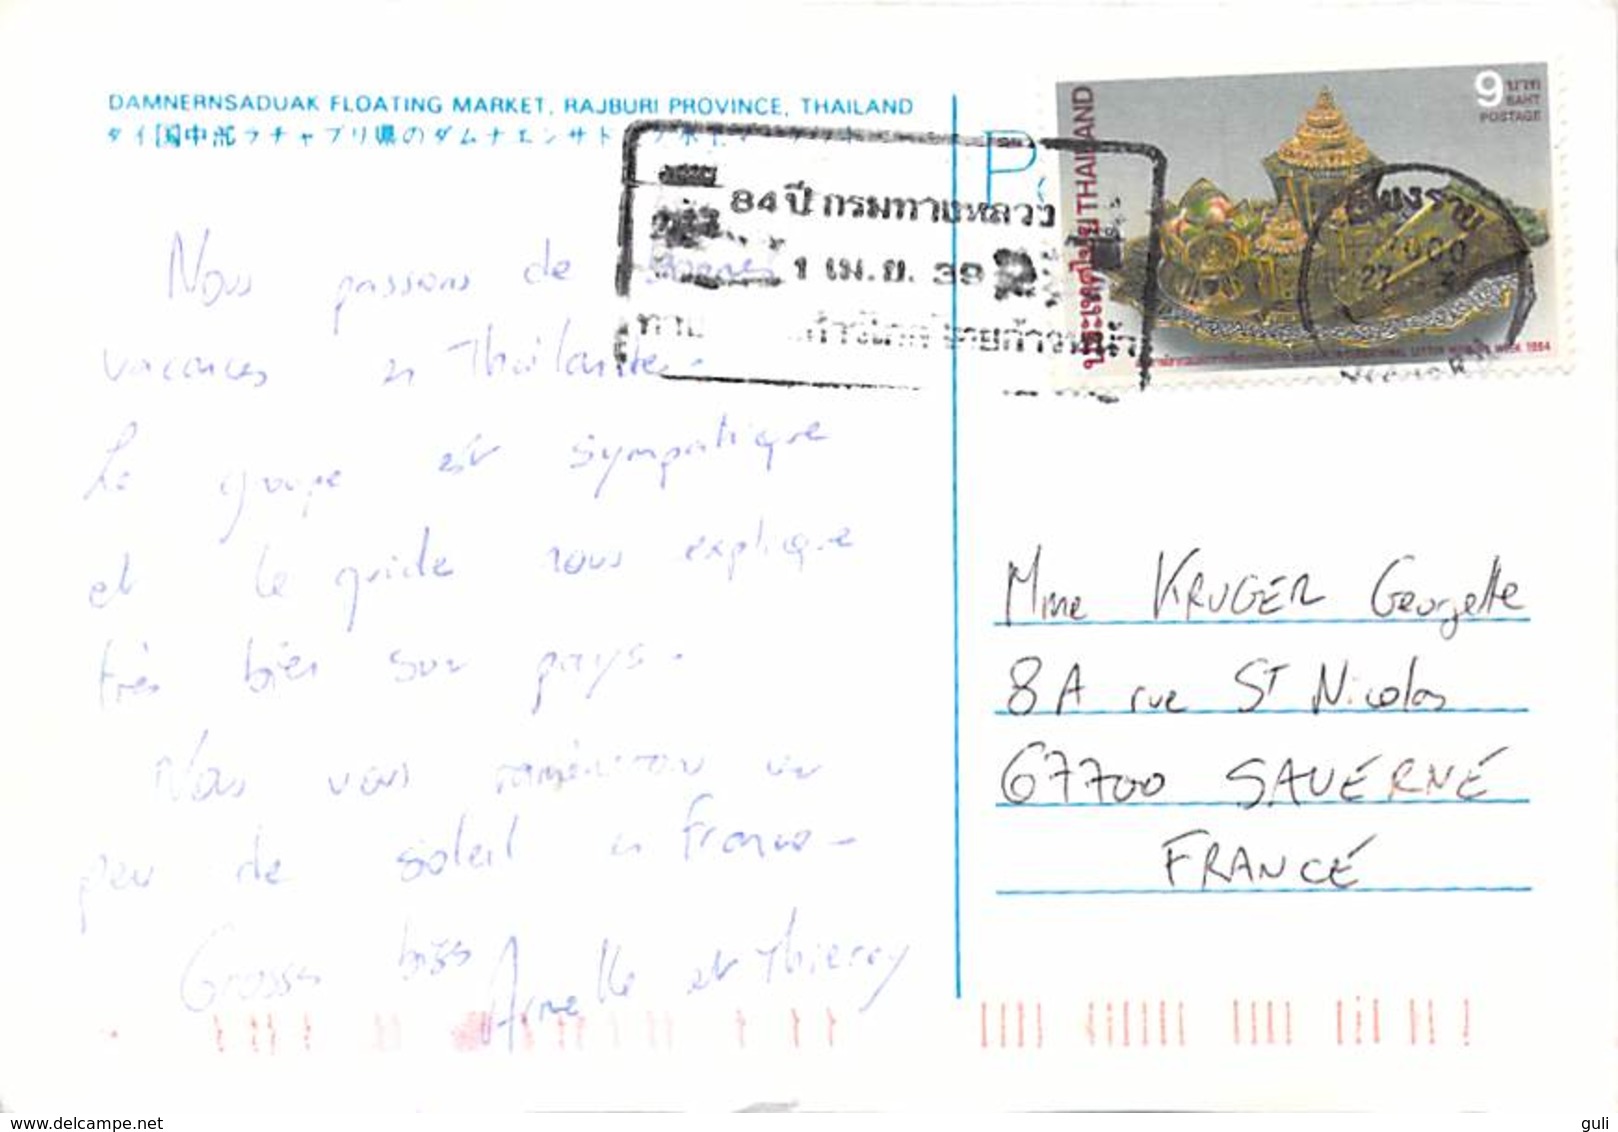 DAMNERNSADUAK FLOATING MARKET, RAJBURI PROVINCE, THAILAND
タイ国中部ラチャブリ県のダムナエンサド
84 ปี กรมทางหลวง
1 เม.ย. 39
9 บาท
BAHT
POSTAGE
ประเทศไทย THAILAND
เชียงราย
1994
Nous passons de bonnes
vacances en Thaïlande.
Le groupe est sympatique
et le guide nous explique
très bien son pays.
Nous vous ramènerons un
peu de soleil en France.
Grosses bises Armelle et Thierry
Mme KRUGER Georgette
8A rue St Nicolas
67700 SAVERNE
FRANCE
www.delcampe.net
guli